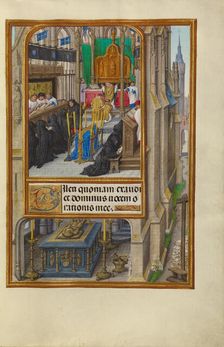 Dilexi quoniam exaudi
et dominus vocem o
rationis mee